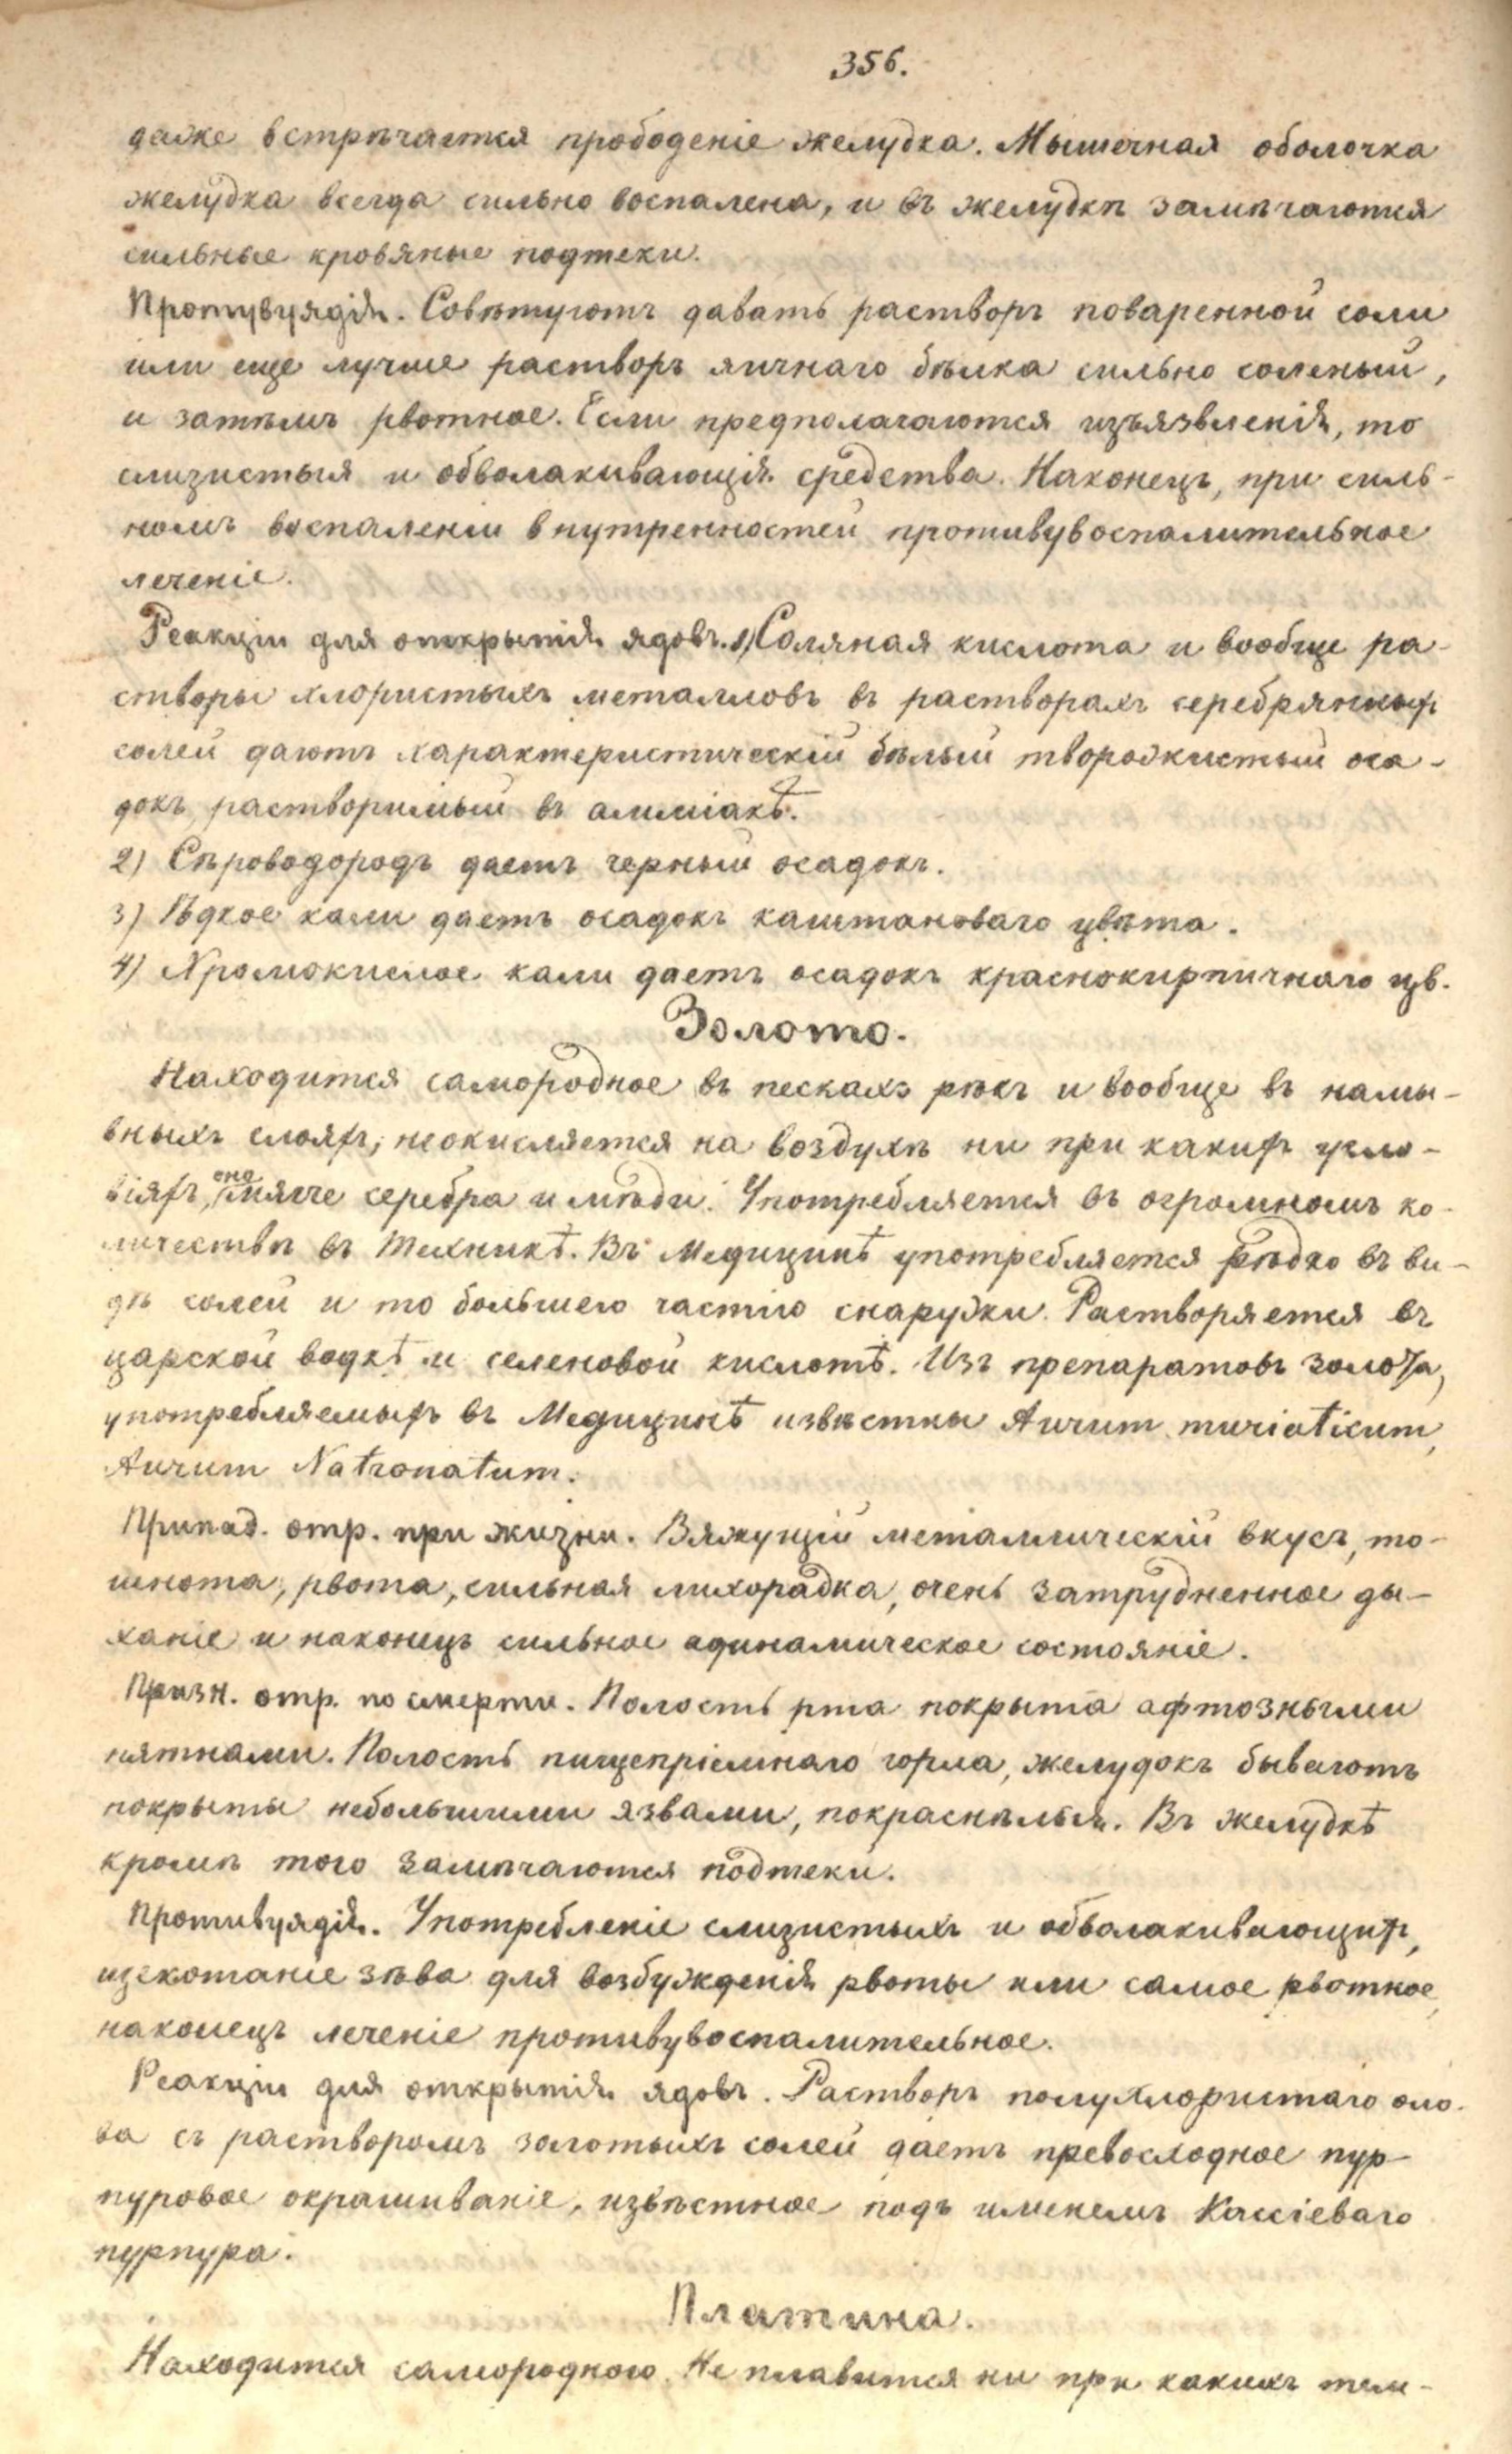 356.
даже встрѣчается прободеніе желудка. Мышечная оболочка
желудка всегда сильно воспалена, и въ желудкѣ замѣчаются
сильные кровяные подтеки.
Противуядія. Совѣтуютъ давать растворъ поваренной соли
или еще лучше растворъ яичнаго бѣлка сильно соленый,
и затѣмъ рвотное. Если предполагаются изъязвленія, то
слизистыя и обволакивающія средства. Наконецъ, при силь-
номъ воспаленіи внутренностей противувоспалительное
леченіе.
Реакціи для открытія ядовъ. 1) Соляная кислота и вообще ра-
створы хлористыхъ металловъ въ растворахъ серебрянныхъ
солей даютъ характеристическій бѣлый творожистый оса-
докъ растворимый въ амміакѣ.
2) Сѣроводородъ даетъ черный осадокъ.
3) Ѣдкое кали даетъ осадокъ каштановаго цвѣта.
4) Хромокислое кали даетъ осадокъ краснокирпичнаго цв.
Золото.
Находится самородное въ пескахъ рѣкъ и вообще въ намы-
вныхъ слояхъ, неокисляется на воздухѣ ни при какихъ усло-
віяхъ, оно мягче серебра и мѣди. Употребляется въ огромномъ ко-
личествѣ въ Техникѣ. Въ Медицинѣ употребляется рѣдко въ ви-
дѣ солей и то большею частію снаружи. Растворяется въ
царской водкѣ и селеновой кислотѣ. Изъ препаратовъ золота,
употребляемыхъ въ Медицинѣ извѣстны Aurum muriaticum,
Aurum Natronatum.
Припад. отр. при жизни. Вяжущій металлическій вкусъ, то-
шнота, рвота, сильная лихорадка, очень затрудненное ды-
ханіе и наконецъ сильное адинамическое состояніе.
Призн. отр. по смерти. Полость рта покрыта афтозными
пятнами. Полость пищепріемнаго горла, желудокъ бываютъ
покрыты небольшими язвами, покраснѣлыя. Въ желудкѣ
кромѣ того замѣчаются подтеки.
Противуядія. Употребленіе слизистыхъ и обволакивающихъ,
щекотаніе зѣва для возбужденія рвоты или самое рвотное,
наконецъ леченіе противувоспалительное.
Реакціи для открытія ядовъ. Растворъ полухлористаго оло-
ва съ растворомъ золотыхъ солей даетъ превосходное пур-
пуровое окрашиваніе, извѣстное подъ именемъ Кассіеваго
пурпура.
Платина.
Находится самородною. Не плавится ни при какихъ тем-